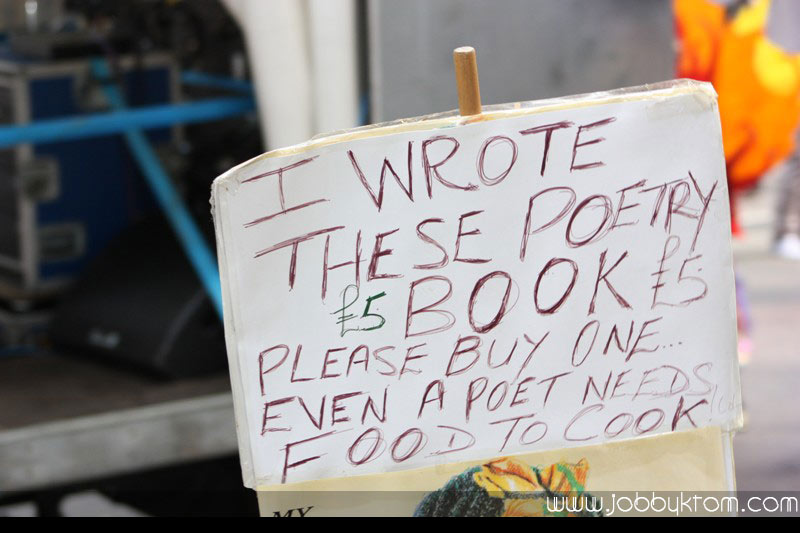 I WROTE
THESE POETRY
£5 BOOK £5
PLEASE BUY ONE...
EVEN A POET NEEDS
FOOD TO COOK
MY
www.jobbyktom.com